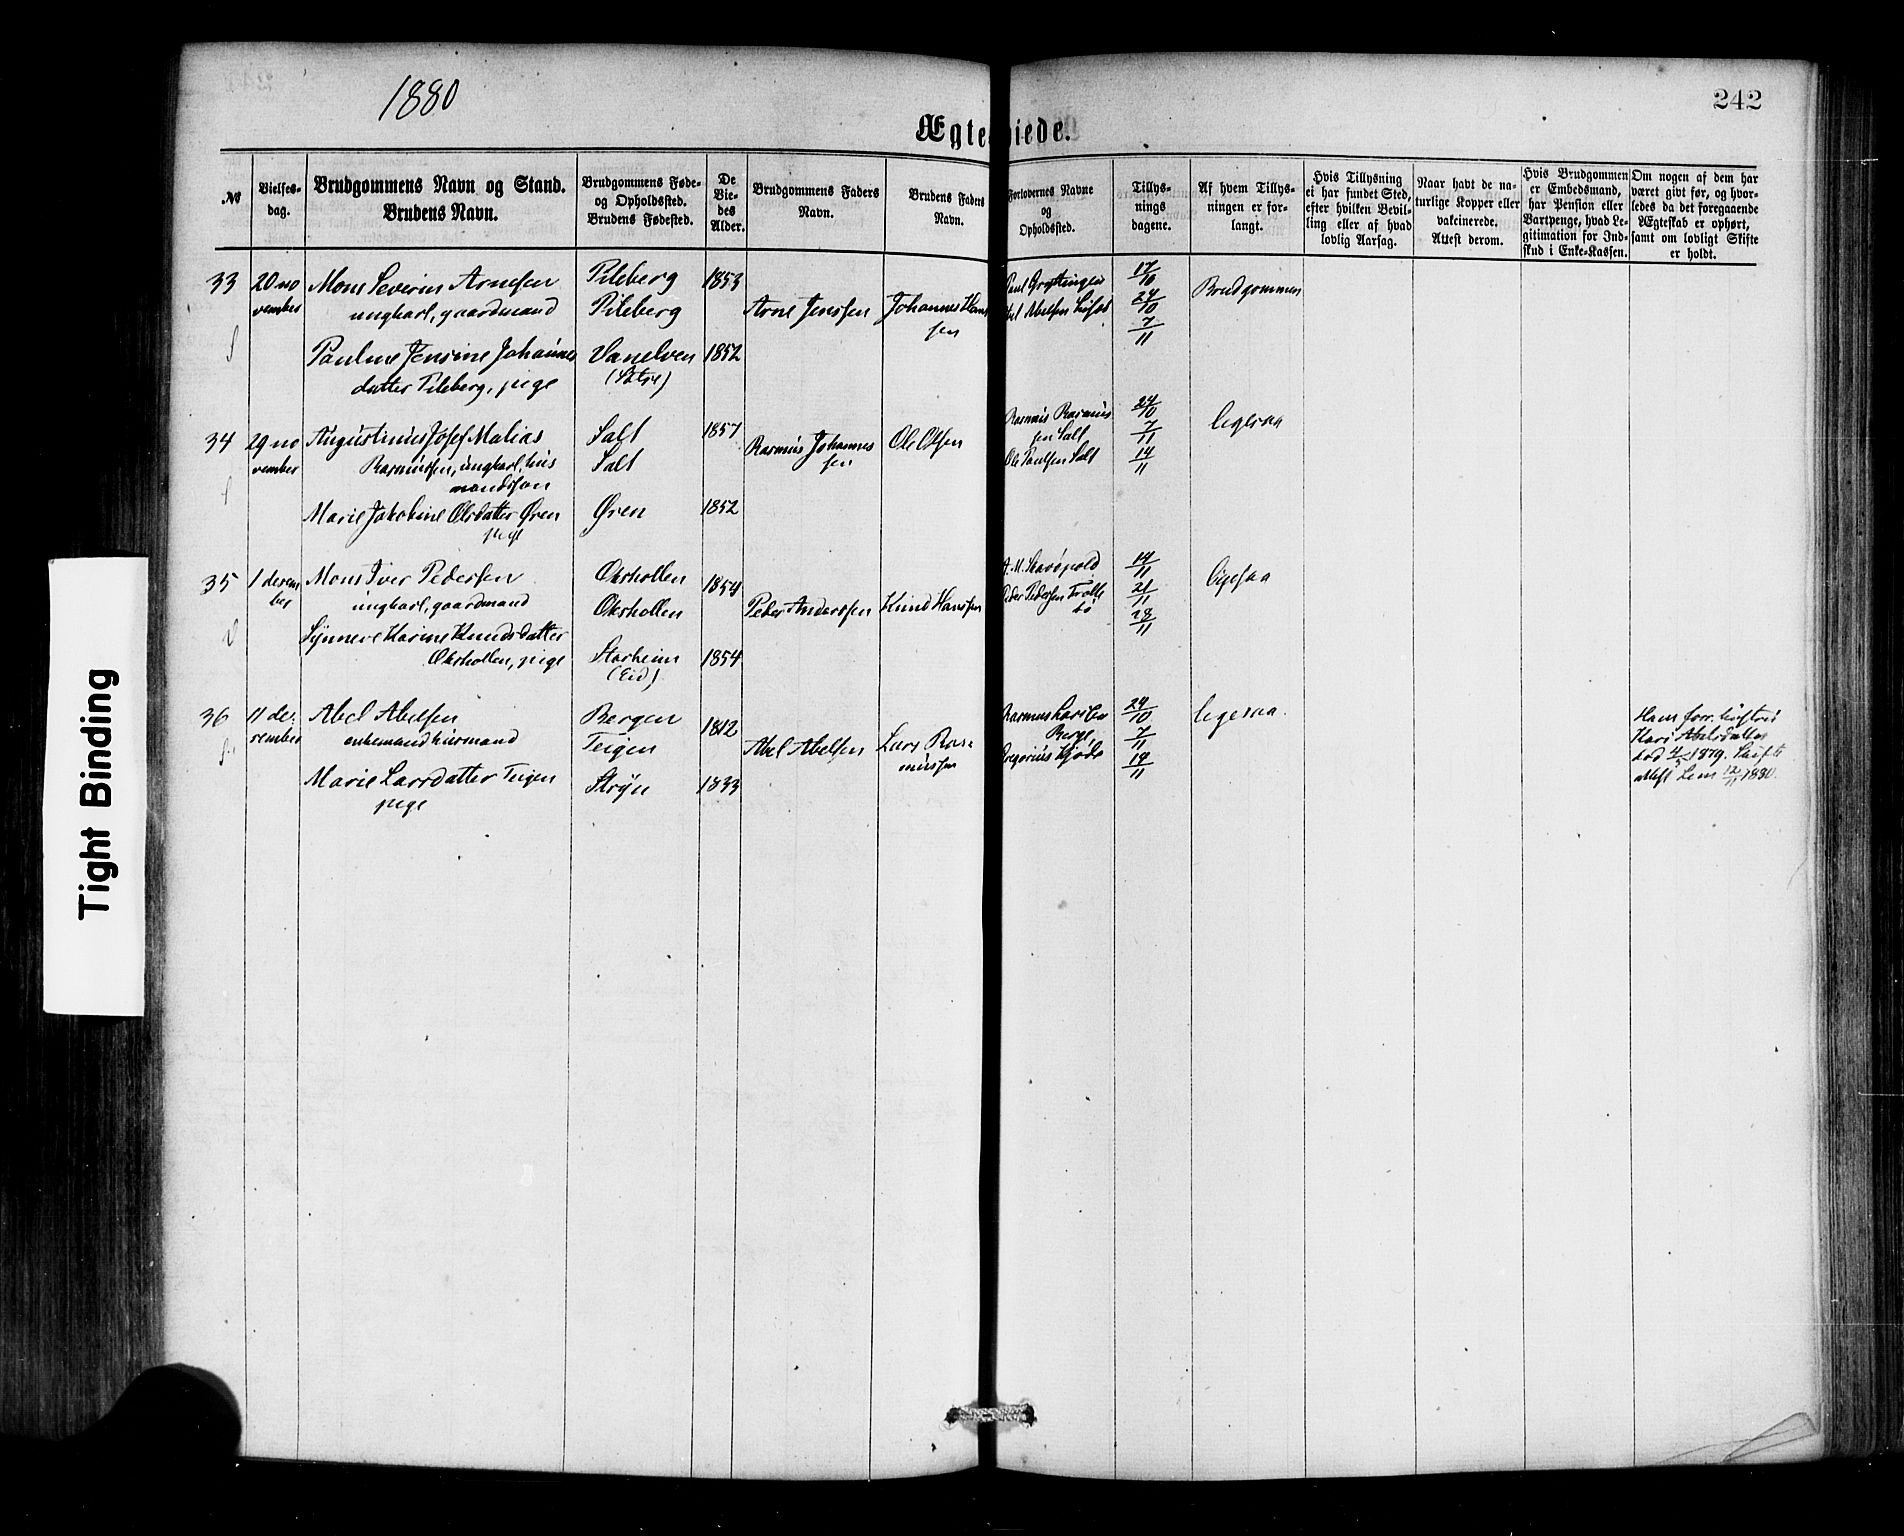 1880
242
Ægteviede.
№
Vielses-
dag.
Brudgommens Navn og Stand.
Brudens Navn.
Brudgommens Føde-
og Opholdssted.
Brudens Fødested.
De
Vie-
des
Alder.
Brudgommens Faders
Navn.
Brudens Faders
Navn.
Forlovernes Navne
og
Opholdssted.
Tillys-
nings
dagene.
Af hvem Tillys-
ningen er for-
langt.
Hvis Tillysning
ei har fundet Sted,
efter hvilken Bevil-
ling eller af hvad
lovlig Aarsag.
Naar havt de na-
turlige Kopper eller
vakcinerede.
Attest derom.
Hvis Brudgommen
er Embedsmand,
har Pension eller
Vartpenge, hvad Le-
gitimation for Ind-
skud i Enke-Kassen.
Om nogen af dem har
været givt før, og hvor-
ledes da det foregaaende
Ægteskab er ophørt,
samt om lovligt Skifte
er holdt.
33
20 no
vember
Mons Severin Arnesen
ungkarl, gaardmand
Pauline Jensine Johannes
datter Pileberg, pige
Pileberg
Pileberg
Vanelven
(Sætre)
1853
1852
Arne Jenssen
Johannes Hans
sen
Paul
Abelsen
17/10
24/10
7/11
Brudgommen
34
29 no
vember
Augustinus Josef Malias
Rasmussen, ungkarl, hus
mandssøn
Marie Jakobine Olsdatter Øren
pige
Salt
Salt
Øren
1857
1852
Rasmus Johannes
sen
Ole Olsen
Rasmus Rasmus
sen Salt
Ole Paulsen Salt
24/10
7/11
14/11
ligesaa
35
1 decem
ber
Mons Iver Pedersen
ungkarl, gaardmand
Synneve Karine Knudsdatter
Oksholen, pige
Oksholen
Oksholen
Starheim
(Eid)
1854
1854
Peder Anderssen
Knud Hanssen
A. M.
Peder Pedersen Trolle
bø
14/11
21/11
28/11
ligesaa
36
11 de-
cember
Abel Abelsen
enkemand husmand
Marie Larsdatter Teigen
pige
Bergen
Teigen
Stryn
1812
1833
Abel Abelsen
Lars Ras-
mussen
Rasmus Larsen
Berge
Gregorius Kjøde
24/10
7/11
14/11
ligesaa.
Hans forr. hustru
Kari Abelsdatter
død 1879. Skifte
attest Lem 12/11 1880.
Tight Binding